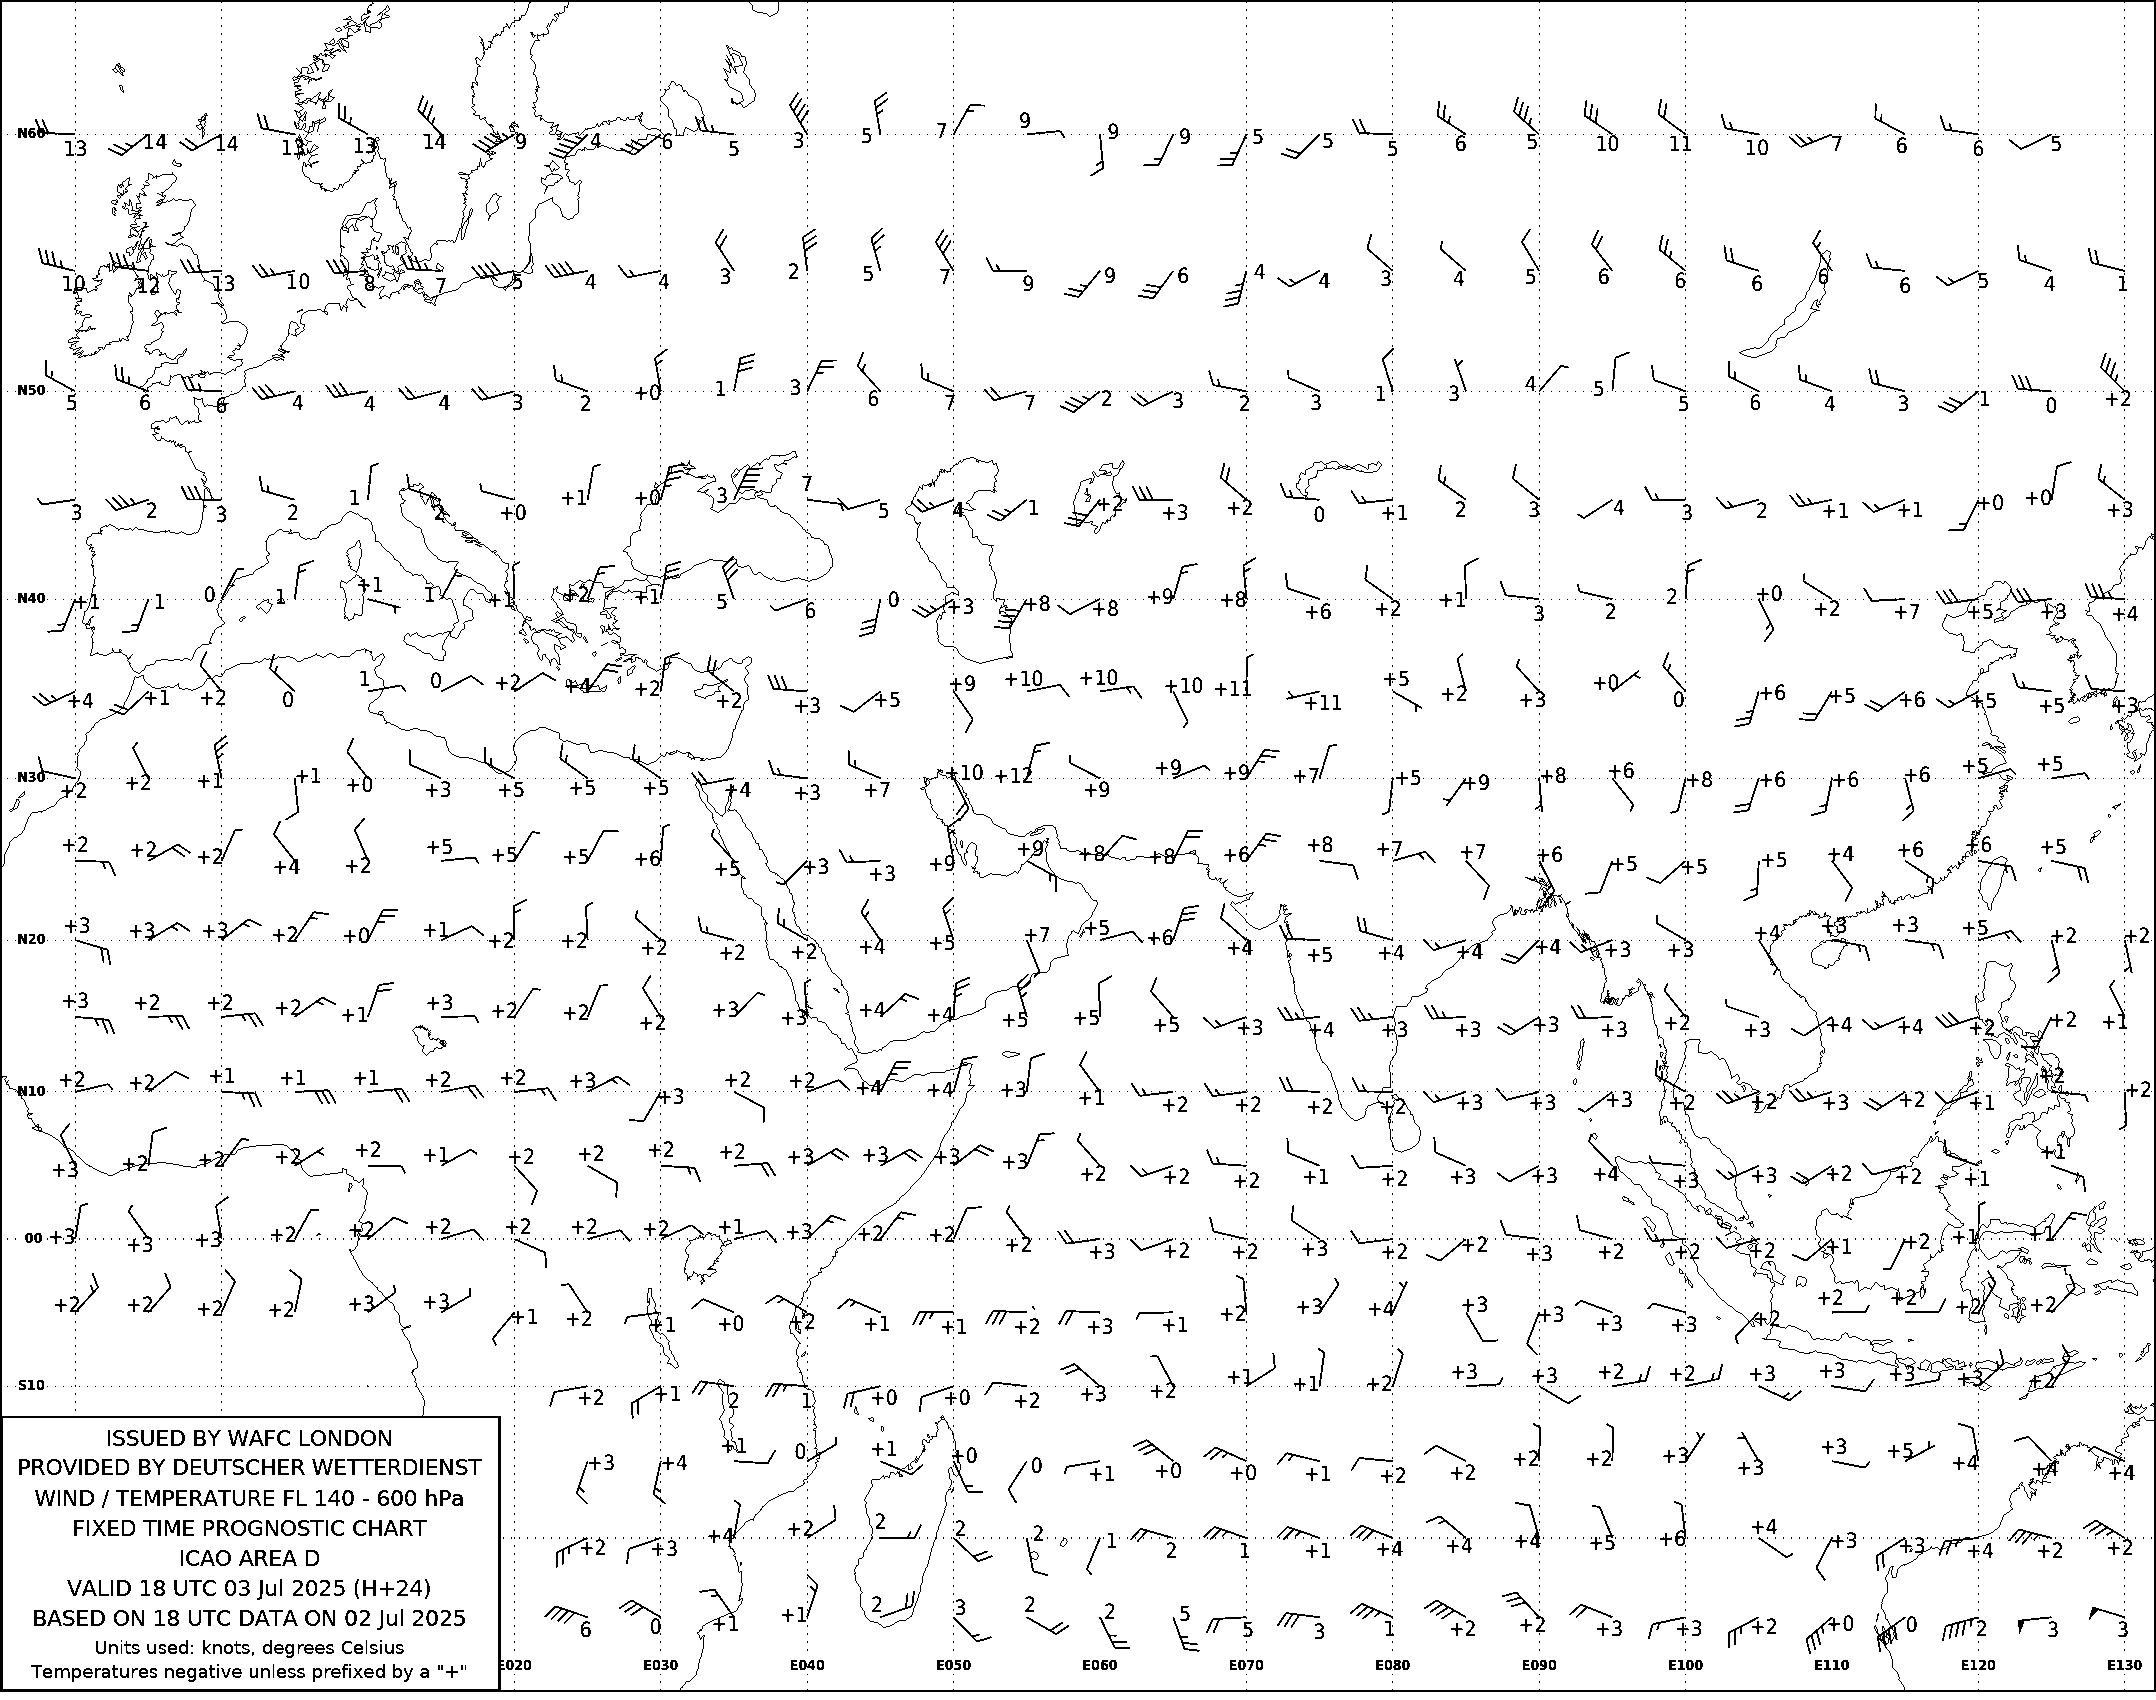 N60 13 14 14 13 13 14 9 4 6 5 3 5 7 9 9 9 5 5 5 6 5 10 11 10 7 6 6 5
10 12 13 10 8 7 5 4 4 3 2 5 7 9 9 6 4 4 3 4 5 6 6 6 6 6 5 4 1
N50 5 6 6 4 4 4 3 2 +0 1 3 6 7 7 2 3 2 3 1 3 4 5 5 6 4 3 1 0 +2
3 2 3 2 1 2 +0 +1 +0 3 7 5 4 1 +2 +3 +2 0 +1 2 3 4 3 2 +1 +1 +0 +0 +3
N40 +1 1 0 1 +1 1 +1 +2 +1 5 6 0 +3 +8 +8 +9 +8 +6 +2 +1 3 2 2 +0 +2 +7 +5 +3 +4
+4 +1 +2 0 1 0 +2 +4 +2 +2 +3 +5 +9 +10 +10 +10 +11 +11 +5 +2 +3 +0 0 +6 +5 +6 +5 +5 +3
N30 +2 +2 +1 +1 +0 +3 +5 +5 +5 +4 +3 +7 +10 +12 +9 +9 +9 +7 +5 +9 +8 +6 +8 +6 +6 +6 +5 +5
+2 +2 +2 +4 +2 +5 +5 +5 +6 +5 +3 +3 +9 +9 +8 +8 +6 +8 +7 +7 +6 +5 +5 +5 +4 +6 +6 +5
N20 +3 +3 +3 +2 +0 +1 +2 +2 +2 +2 +2 +4 +5 +7 +5 +6 +4 +5 +4 +4 +4 +3 +3 +4 +3 +3 +5 +2 +2
+3 +2 +2 +2 +1 +3 +2 +2 +2 +3 +3 +4 +4 +5 +5 +5 +3 +4 +3 +3 +3 +3 +2 +3 +4 +4 +2 +2 +1
N10 +2 +2 +1 +1 +1 +2 +2 +3 +3 +2 +2 +4 +4 +3 +1 +2 +2 +2 +2 +3 +3 +3 +2 +2 +3 +2 +1 +2 +2
+3 +2 +2 +2 +2 +1 +2 +2 +2 +2 +3 +3 +3 +3 +2 +2 +2 +1 +2 +3 +3 +4 +3 +3 +2 +2 +1 +1
00 +3 +3 +3 +2 +2 +2 +2 +2 +2 +1 +3 +2 +2 +2 +3 +2 +2 +3 +2 +2 +3 +2 +2 +2 +1 +2 +1 +1
+2 +2 +2 +2 +3 +3 +1 +2 +1 +0 +2 +1 +1 +2 +3 +1 +2 +3 +4 +3 +3 +3 +3 +2 +2 +2 +2 +2
S10 +2 +1 2 1 +0 +0 +2 +3 +2 +1 +1 +2 +3 +3 +2 +2 +3 +3 +3 +3 +2
+3 +4 +1 0 +1 +0 0 +1 +0 +0 +1 +2 +2 +2 +2 +3 +3 +3 +5 +4 +4 +4
+2 +3 +4 +2 2 2 2 1 2 1 +1 +4 +4 +4 +5 +6 +4 +3 +3 +4 +2 +2
6 0 +1 +1 2 3 2 2 5 5 3 1 +2 +2 +3 +3 +2 +0 0 2 3 3
E020 E030 E040 E050 E060 E070 E080 E090 E100 E110 E120 E130
ISSUED BY WAFC LONDON
PROVIDED BY DEUTSCHER WETTERDIENST
WIND / TEMPERATURE FL 140 - 600 hPa
FIXED TIME PROGNOSTIC CHART
ICAO AREA D
VALID 18 UTC 03 Jul 2025 (H+24)
BASED ON 18 UTC DATA ON 02 Jul 2025
Units used: knots, degrees Celsius
Temperatures negative unless prefixed by a "+"